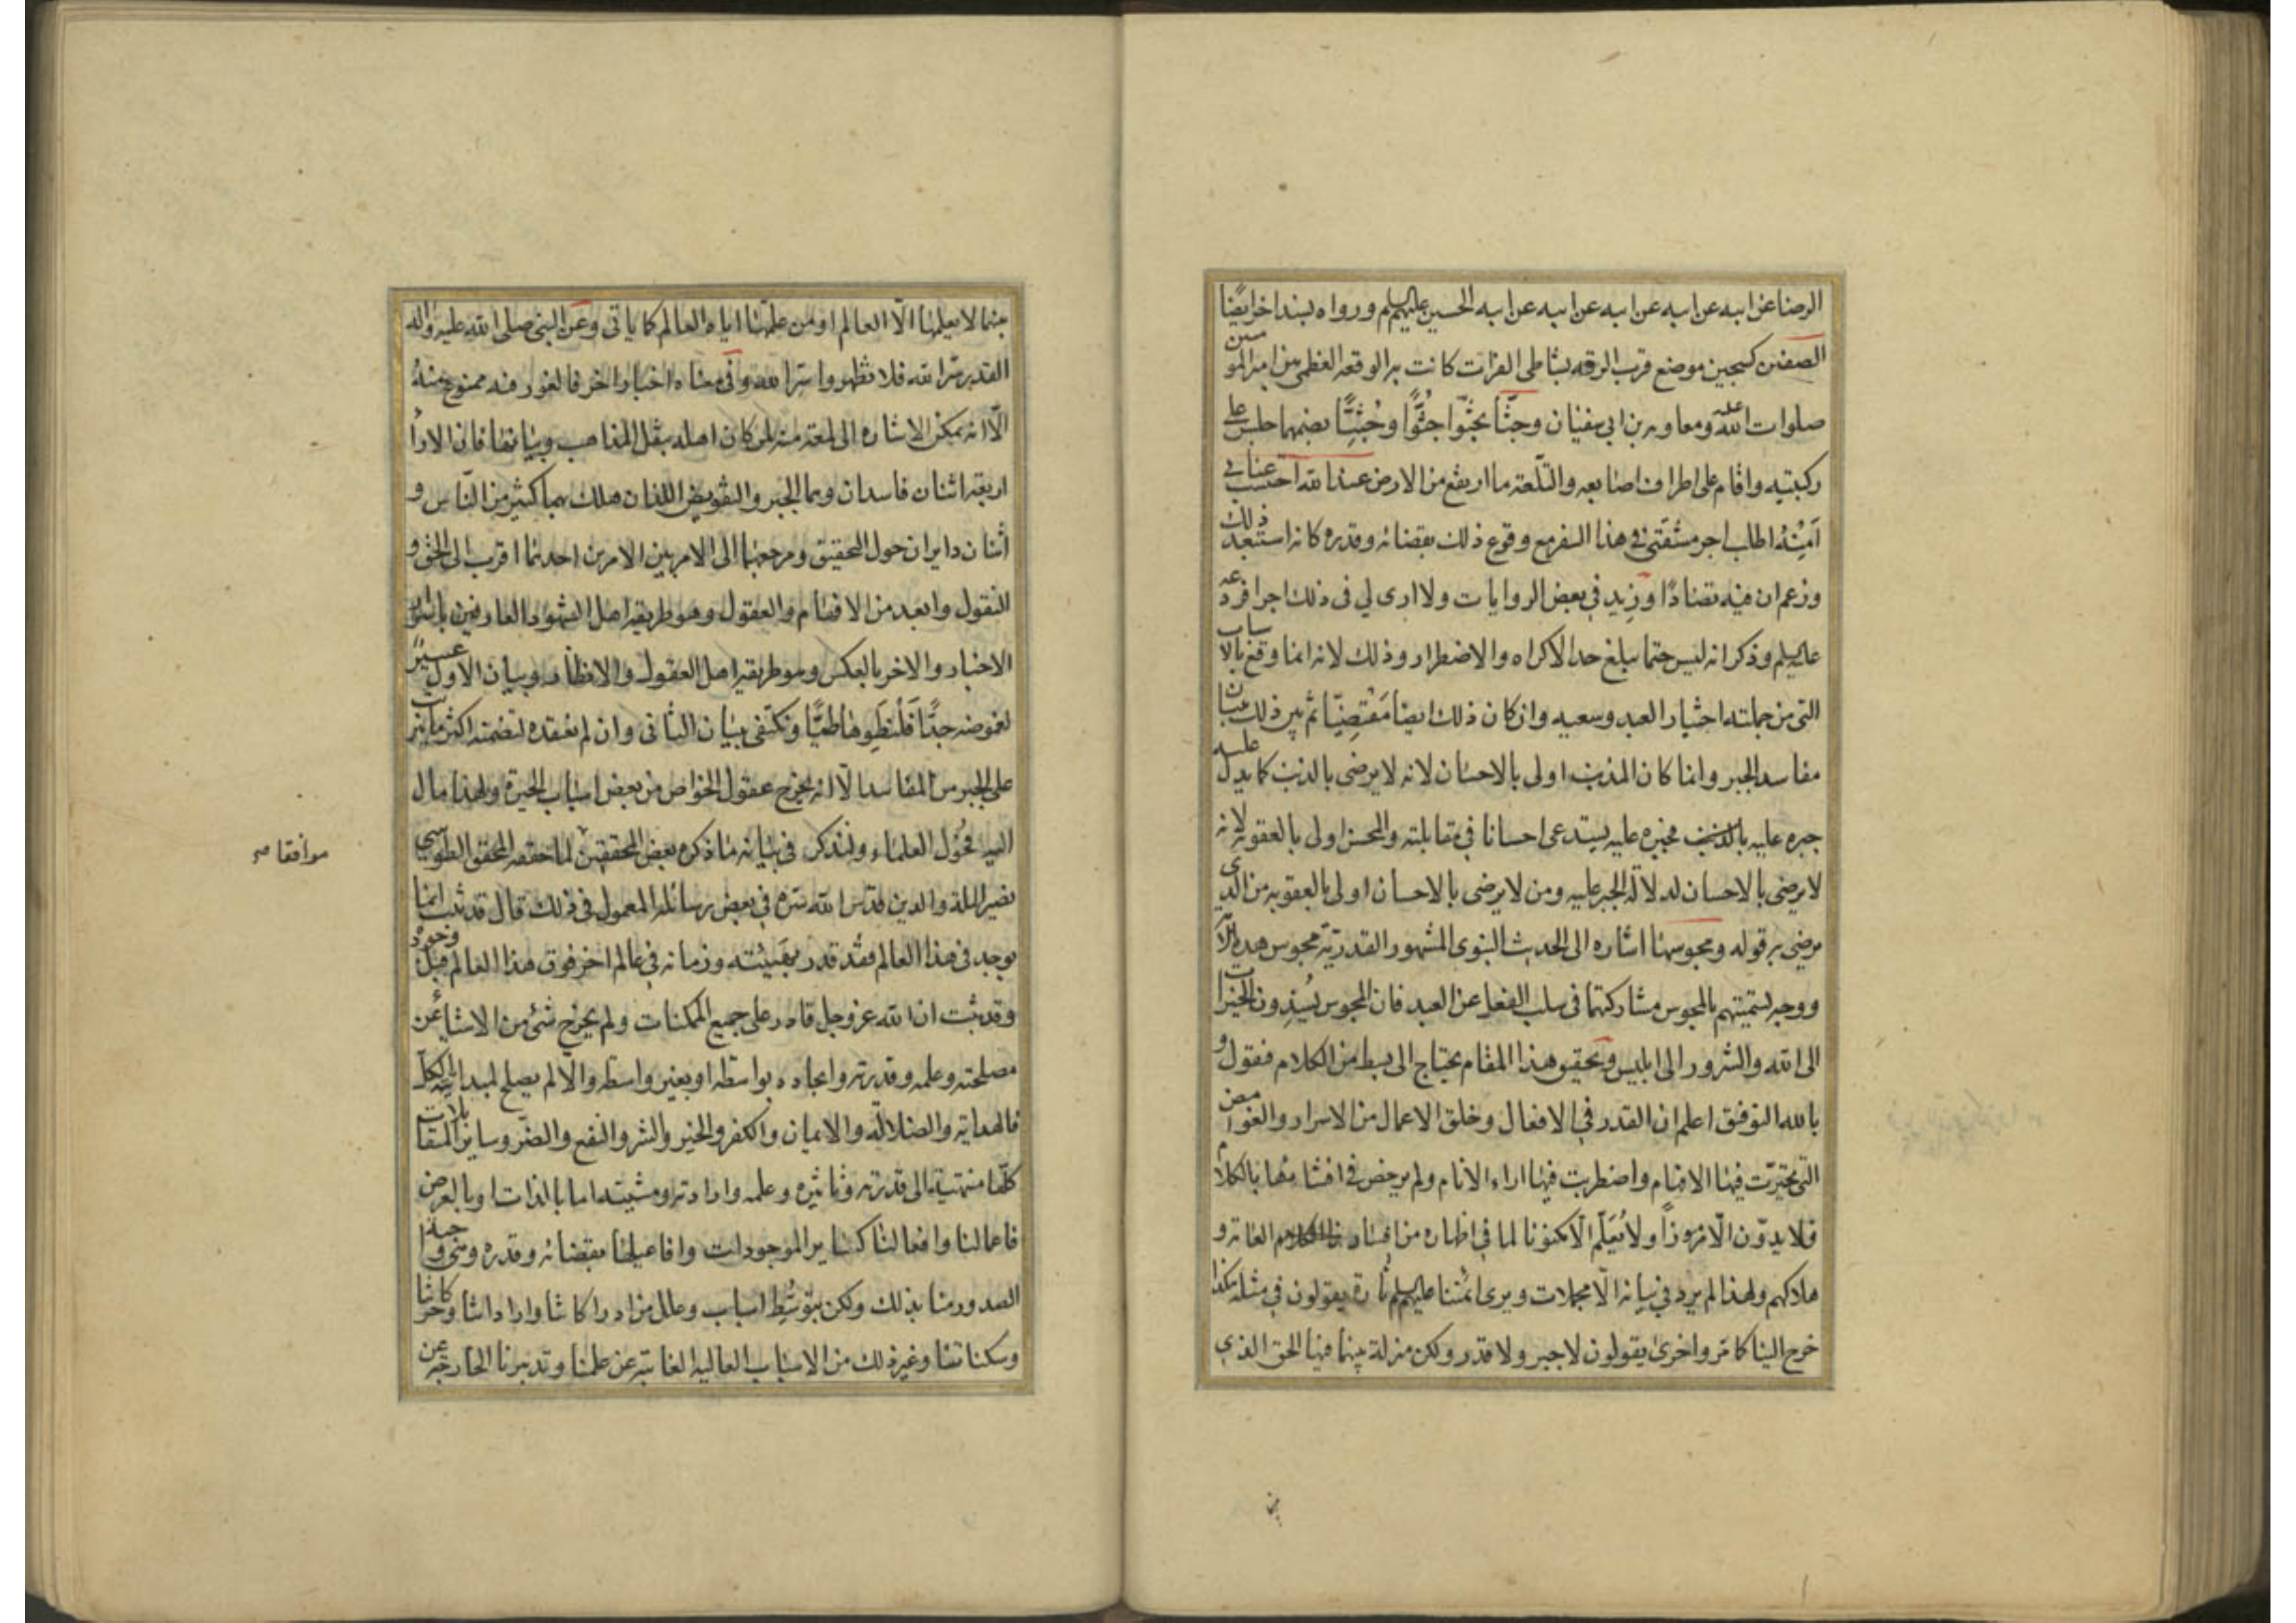 الرضا عن ابيه عن ابيه عن ابيه عن ابيه عن ابيه الحسين عليهم السلم ورواه بسند اخر ايضا
الصفين كسجين موضع قرب الرقه بشاطى الفرات كانت به الوقعه العظمى بين امير المومنين
صلوات الله عليه ومعاويه بن ابى سفيان وجثا يجثوا جثوًّا وجُثِيًّا بضمهما جلس على
ركبتيه واقام على اطراف اصابعه والتلعة ما ارتفع من الارض عند الله احتسب عنائى
اطلب اجر مشقتى فى هذا السفر مع وقوع ذلك بقضائه وقدره كانه استبعد ذلك
وزعم ان فيه تضادًا وزيد فى بعض الروايات ولا ارى لى فى ذلك اجرا فردعه
عليه السلم وذكر انه ليس حتما يبلغ حد الاكراه والاضطرار وذلك لانه انما وقع بالاسباب
التى من جملته اختيار العبد وسعيه وان كان ذلك ايضا مَقْضِيّا ثم بين ذلك ببيان
مفاسد الجبر وانما كان المذنب اولى بالاحسان لانه لا يرضى بالذنب كما يدل عليه
جبره عليه بالذنب فجبره عليه يستدعى احسانا فى مقابلته والمحسن اولى بالعقوبة لانه
لا يرضى بالاحسان لدلالة الجبر عليه ومن لا يرضى بالاحسان اولى بالعقوبه من الذى
يرضى به قوله ومجوسها اشاره الى الحديث النبوى المشهور القدرية مجوس هذه الامة
ووجه تسميتهم بالمجوس مشاركتهما فى سلب الفعل عن العبد فان المجوس يُسنِدون الخيرات
الى الله والشرور الى ابليس وتحقيق هذا المقام يحتاج الى بسط من الكلام فنقول و
بالله التوفيق اعلم ان القدر فى الافعال وخلق الاعمال من الاسرار والغوامض
التى تحيّرت فيها الافهام واضطربت فيها اراء الانام ولم يرخص فى افشائها بالكلام
فلا يدوّن الّا مرموزاً ولا يُعَلّم الّا مكنونا لما فى اظهاره من افساد العامة و
هلاكهم ولهذا لم يرد فى بيانه الّا مجملات ويرى ائمتنا عليهم السلم تارة يقولون فى مثله هكذا
خرج الينا كما مر واخرى يقولون لا جبر ولا قدر ولكن منزلة بينهما فيها الحق الذى
بينهما لا يعلمها الّا العالم او من علّمها اياه العالم كما ياتى وعن النبى صلى الله عليه واله
القدر سرّ الله فلا تظهروا سرّ الله وفى معناه اخبار اخر فالغور فيه ممنوع منهُ
الّا انه يمكن الاشاره الى لمعة منه لمن كان اهله بنقل المذاهب وبيانها فان الاراء
اربعة اثنان فاسدان وهما الجبر والتفويض اللذان هلك بهما كثير من الناس و
اثنان دايران حول التحقيق ومرجعهما الى الامر بين الامرين احدهما اقرب الى الحق و
النقول وابعد من الافهام والعقول وهو طريقة اهل الشهود العارفين باسرار
الاخبار والاخر بالعكس وهو طريقة اهل العقول والانظار وبيان الاول عسير
لغموضه جدًّا فلنطوها طيًّا ونكتفى ببيان الثانى وان لم نعقده لتضمنه اكثر ما يترتب
على الجبر من المفاسد الّا انه يخرج عقول الخواص من بعض اسباب الحيرة ولهذا مال
اليه فحُول العلماء ولنذكر فى بيانه ما ذكره بعض المحققين لما حققه المحقق الطوسى
موافقا صح
نصير الملة والدين قدس الله سره فى بعض رسائله المعمول فى ذلك قال قد ثبت ان ما
يوجد فى هذا العالم فقد قدر بهيئته وزمانه فى عالم اخر فوق هذا العالم قبل وجوده
وقد ثبت ان الله عز وجل قادر على جميع الممكنات ولم يخرج شىء من الاشياء عن
مصلحته وعلمه وقدرته وايجاده بواسطه او بغير واسطه والّا لم يصلح لمبدائية الكل
فالهداية والضلالة والايمان والكفر والخير والشر والنفع والضرّ وساير المتقابلات
كلّها منتهية الى قدرته وتاثيره وعلمه وارادته ومشيته اما بالذات او بالعرض
فاعمالنا وافعالنا كساير الموجودات وافاعيلها بقضائه وقدره وهى واجبة
الصدور منا بذلك ولكن بتوسّط اسباب وعلل من ادراكاتنا واراداتنا وحركاتنا
وسكناتنا وغير ذلك من الاسباب العاليه الغائبة عن علمنا وتدبيرنا الخارجة عن